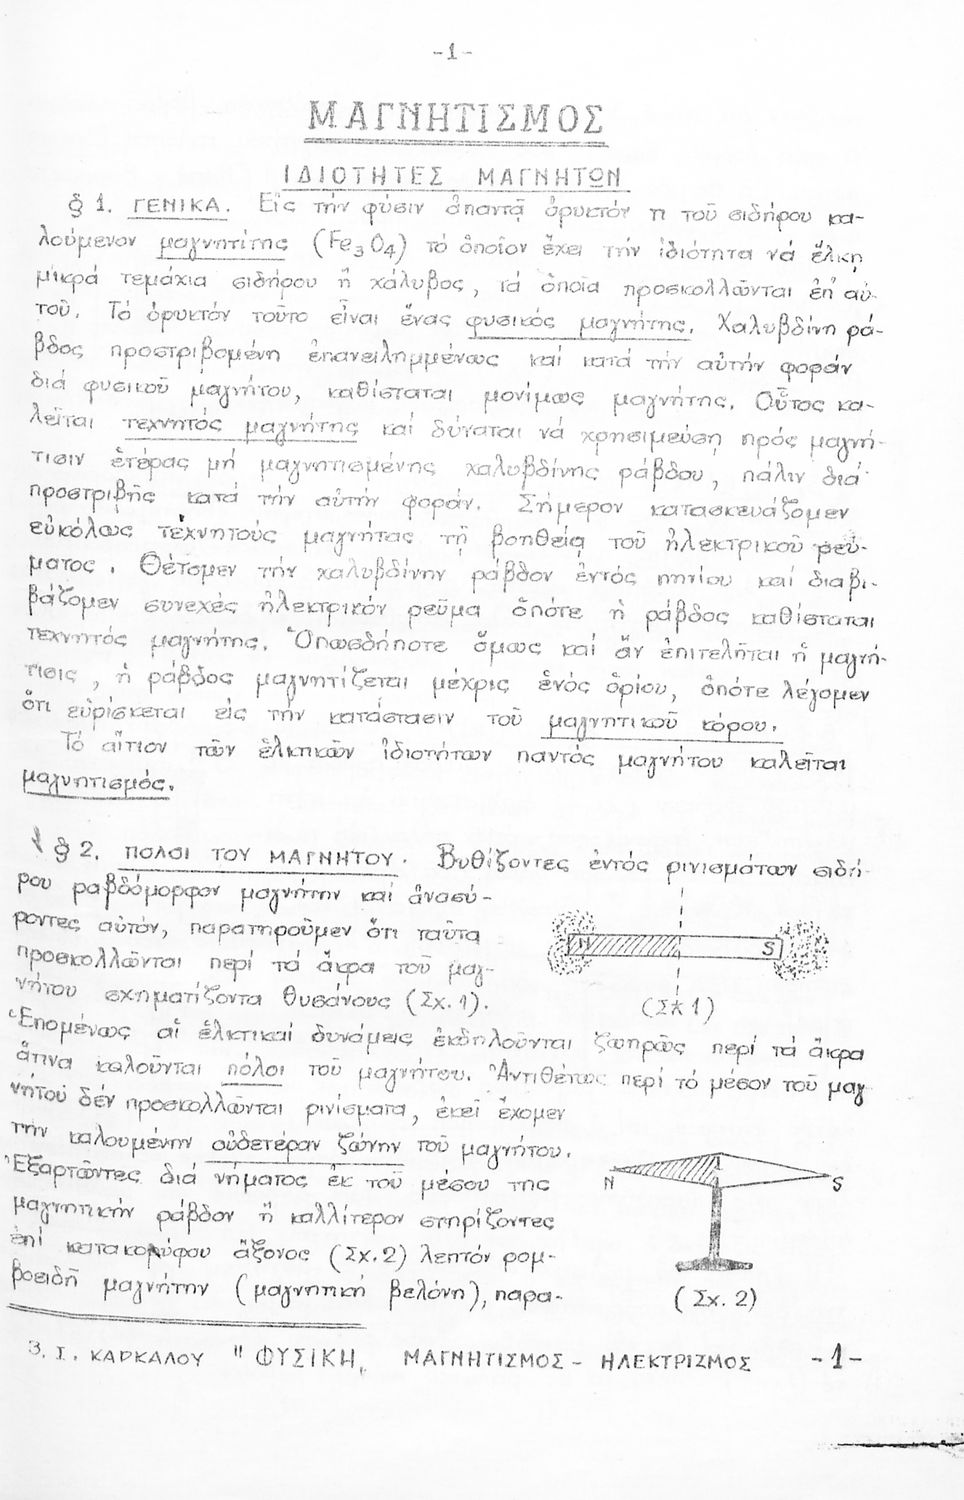 -1-
ΜΑΓΝΗΤΙΣΜΟΣ
ΙΔΙΟΤΗΤΕΣ ΜΑΓΝΗΤΩΝ
§ 1. ΓΕΝΙΚΑ. Εἰς τήν φύσιν ἀπαντᾷ ὀρυκτόν τι τοῦ σιδήρου κα-
λούμενον μαγνητίτης (Fe3O4) τό ὁποῖον ἔχει τήν ἰδιότητα νά ἕλκῃ
μικρά τεμάχια σιδήρου ἤ χάλυβος, τά ὁποῖα προσκολλῶνται ἐπ' αὐ-
τοῦ. Τό ὀρυκτόν τοῦτο εἶναι ἕνας φυσικός μαγνήτης. Χαλυβδίνη ρά-
βδος προστριβομένη ἐπανειλημμένως καί κατά τήν αὐτήν φοράν
διά φυσικοῦ μαγνήτου, καθίσταται μονίμως μαγνήτης. Οὗτος κα-
λεῖται τεχνητός μαγνήτης καί δύναται νά χρησιμεύσῃ πρός μαγνή-
τισιν ἑτέρας μή μαγνητισμένης χαλυβδίνης ράβδου, πάλιν διά
προστριβῆς κατά τήν αὐτήν φοράν. Σήμερον κατασκευάζομεν
εὐκόλως τεχνητούς μαγνήτας τῇ βοηθείᾳ τοῦ ἠλεκτρικοῦ ρεύ-
ματος. Θέτομεν τήν χαλυβδίνην ράβδον ἐντός πηνίου καί διαβι-
βάζομεν συνεχές ἠλεκτρικόν ρεῦμα ὁπότε ἡ ράβδος καθίσταται
τεχνητός μαγνήτης. Ὁπωσδήποτε ὅμως καί ἄν ἐπιτελῆται ἡ μαγνή-
τισις, ἡ ράβδος μαγνητίζεται μέχρις ἑνός ὁρίου, ὁπότε λέγομεν
ὅτι εὑρίσκεται εἰς τήν κατάστασιν τοῦ μαγνητικοῦ κόρου.
Τό αἴτιον τῶν ἑλκτικῶν ἰδιοτήτων παντός μαγνήτου καλεῖται
μαγνητισμός.
§ 2. ΠΟΛΟΙ ΤΟΥ ΜΑΓΝΗΤΟΥ. Βυθίζοντες ἐντός ρινισμάτων σιδή-
ρου ραβδόμορφον μαγνήτην καί ἀνασύ-
ροντες αὐτόν, παρατηροῦμεν ὅτι ταῦτα
προσκολλῶνται περί τά ἄκρα τοῦ μαγ-
νήτου σχηματίζοντα θυσάνους (Σχ. 1).
N S
(Σχ 1)
Ἑπομένως αἱ ἑλκτικαί δυνάμεις ἐκδηλοῦνται ζωηρῶς περί τά ἄκρα
ἅτινα καλοῦνται πόλοι τοῦ μαγνήτου. Ἀντιθέτως περί τό μέσον τοῦ μαγ
νήτου δέν προσκολλῶνται ρινίσματα, ἐκεῖ ἔχομεν
τήν καλουμένην οὐδετέραν ζώνην τοῦ μαγνήτου.
Ἐξαρτῶντες διά νήματος ἐκ τοῦ μέσου της
μαγνητικήν ράβδον ἤ καλλίτερον στηρίζοντες
ἐπί κατακορύφου ἄξονος (Σχ. 2) λεπτόν ρομ-
βοειδῆ μαγνήτην (μαγνητική βελόνη), παρα-
N S
(Σχ. 2)
3. Ι. ΚΑΡΚΑΛΟΥ "ΦΥΣΙΚΗ" ΜΑΓΝΗΤΙΣΜΟΣ - ΗΛΕΚΤΡΙΣΜΟΣ -1-